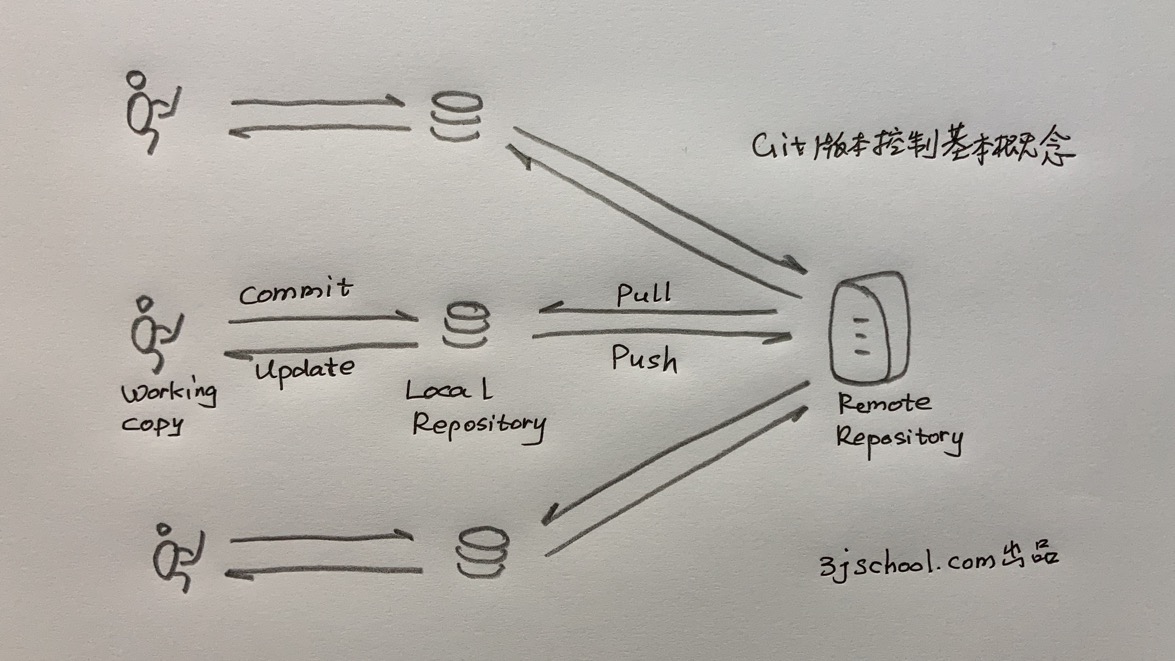 Git版本控制基本概念
Commit
Pull
Update
Push
Working
copy
Local
Repository
Remote
Repository
3jschool.com出品